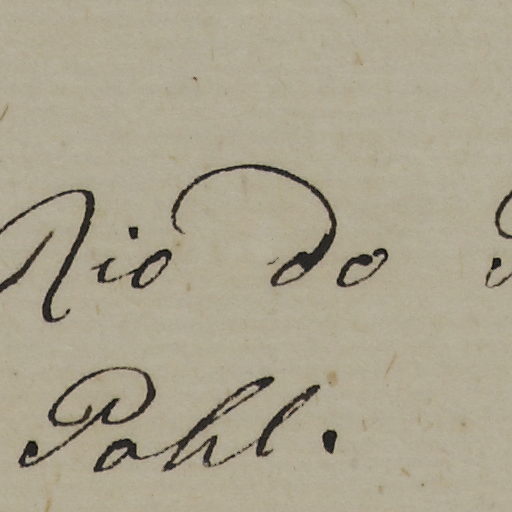 Rio do
Pohl.